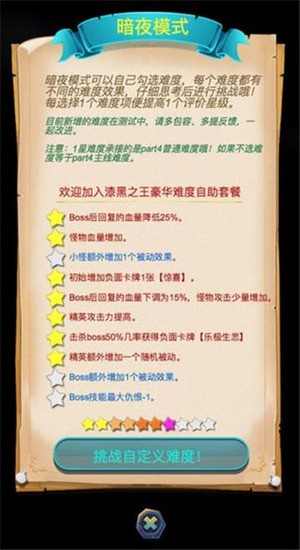 暗夜模式
暗夜模式可以自己勾选难度，每个难度都有
不同的难度效果，仔细思考后进行挑战哦！
每选择1个难度项便提高1个评价星级。
目前新增的难度在测试中，请多包容、多提反馈，一
起改进。
注意：1星难度承接的是part4普通难度哦！如果不选难
度等于part4主线难度。
欢迎加入漆黑之王豪华难度自助套餐
Boss后回复的血量降低25%。
怪物血量增加。
小怪额外增加1个被动效果。
初始增加负面卡牌1张【惊喜】。
Boss后回复的血量下调为15%，怪物攻击少量增加。
精英攻击力提高。
击杀boss50%几率获得负面卡牌【乐极生悲】
精英额外增加一个随机被动。
Boss额外增加1个被动效果。
Boss技能最大仇恨-1。
挑战自定义难度！